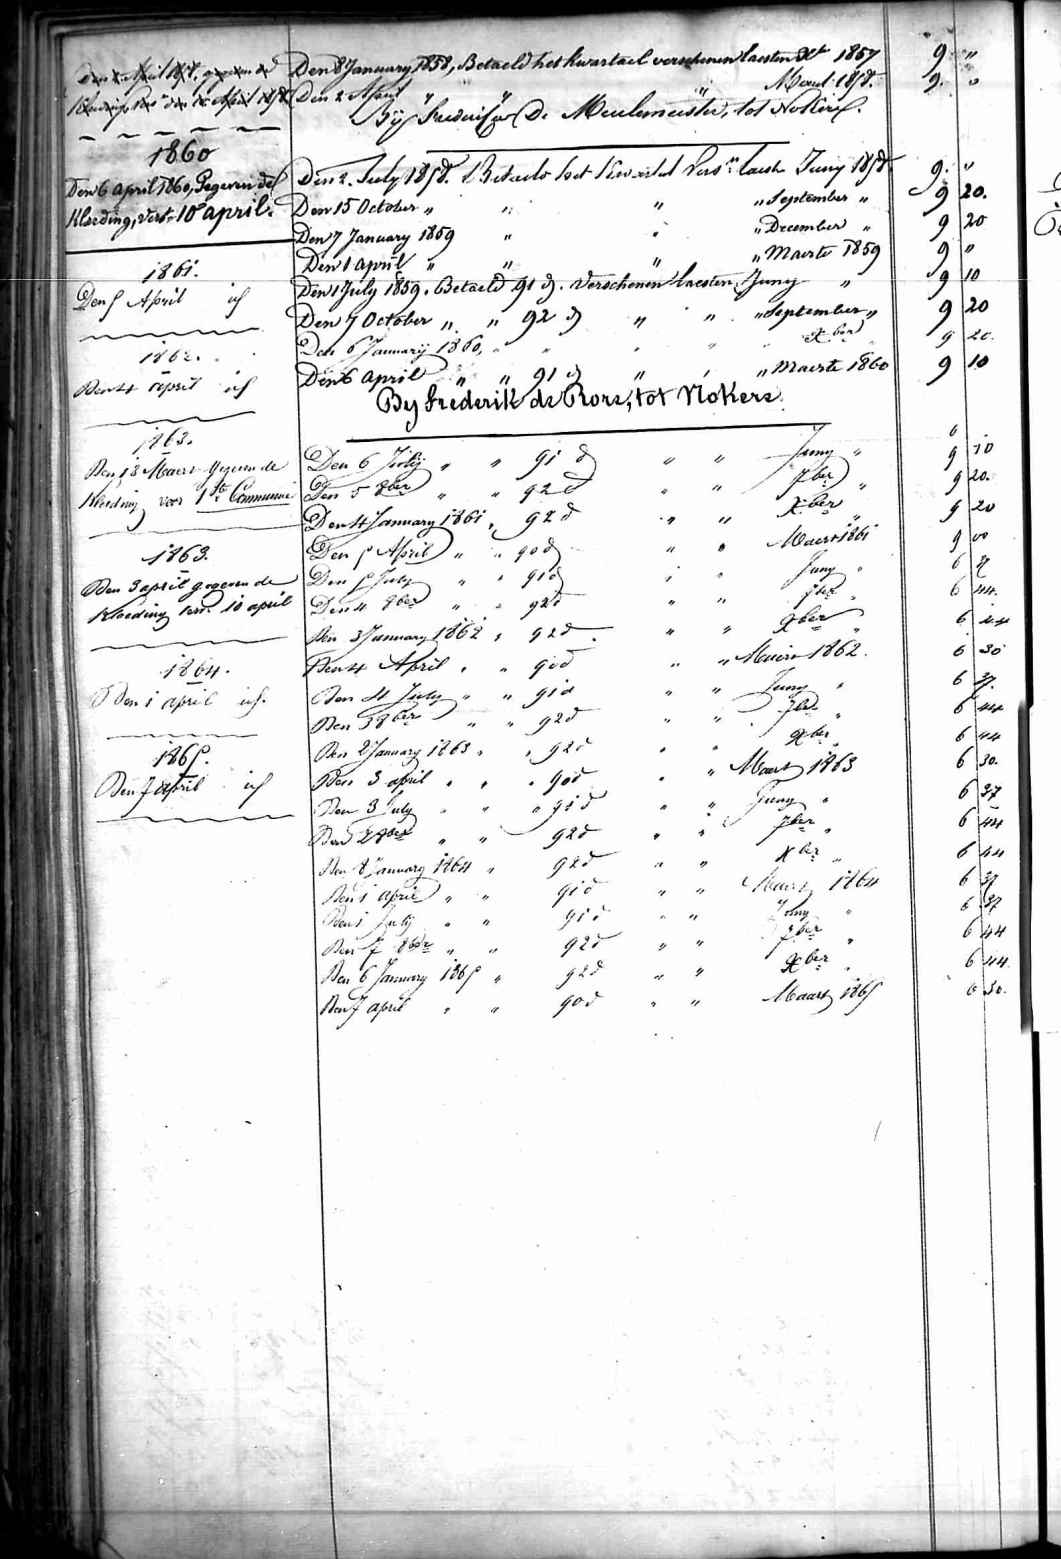 Den 8 January 1858, Betaeld het kwartael verschenen laesten Xbr 1857 9 "
Den 2 April " " " Maert 1858. 9. "
Bij Frederik De Meulemeester, tot Nokere.
1860
Den 6 april 1860, Gegeven de
Kleeding, verst 10 april.
1861.
Den 5 April id
1862.
Den 4 april id
1863.
Den 13 Maert gegeven de
Kleeding voor 1ste Communie
1863.
Den 3 april gegeven de
Kleeding verv. 10 april
1864.
Den 1 april id.
1865.
Den 7 april id
Den 2. July 1858. Betaeld het Kwartael Versn laeste Juny 1858. 9. "
Den 15 October " " " " September " 9 20.
Den 7 January 1859 " " " December " 9 20
Den 1 april " " " " Maerte 1859 9 "
Den 1 July 1859. Betaeld 91 d. verschenen laesten Juny " 9 10
Den 7 October " " 92 d " " " September " 9 20
Den 6 Januarij 1860, " " " " Xber 9 20.
Den 6 April " " 91 d " " " Maerte 1860 9 10
By Frederik de Rore, tot Nokere.
Den 6 Julij " " 91 d " " Juny " 9 10
Den 5 8ber " " 92 d " " 7ber " 9 20.
Den 4 January 1861 " 92 d " " Xber " 9 20
Den 5 April " " 90 d " " Maert 1861 9 00
Den 5 July " " 91 d " " Juny " 6 37
Den 4 8ber " " 92 d " " 7ber " 6 44.
Den 3 January 1862 " 92 d. " " Xber " 6 44
Den 4 April " " 90 d " " Maert 1862. 6 30
Den 4 July " " 91 d " " Juny " 6 37.
Den 3 8ber " " 92 d " " 7ber " 6 44
Den 2 January 1863 " " 92 d " " Xber " 6 44
Den 3 april " " " 90 d " " Maert 1863 6 30.
Den 3 July " " " 91 d " " Juny " 6 37
Den 2 8ber " " 92 d " " 7ber " 6 44
Den 8 January 1864 " 92 d " " Xber " 6 44
Den 1 april " " 91 d " " Maert 1864 6 37
Den 1 Julij " " 91 d " " Juny " 6 37
Den 7 8ber " " 92 d " " 7ber " 6 44
Den 6 January 1865 " 92 d " " Xber " 6 44.
Den 7 april " " 90 d " " Maart 1865 6 30.